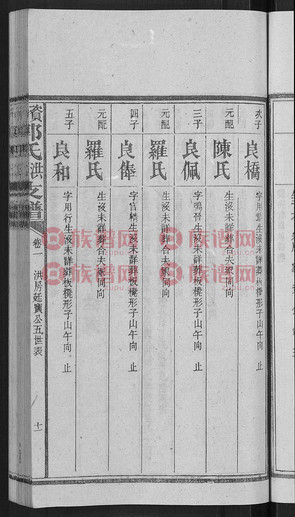 次子
良橋
字用㵾生沒未詳葬板櫈形子山午向 止
元配
陳氏
生沒未詳葬合夫冢同向
三子
良佩
字鳴晉生沒未詳葬板櫈形子山午向 止
元配
羅氏
生沒未詳葬合夫冢同向
四子
良俸
字宮生沒未詳葬板櫈形子山午向 止
元配
羅氏
生沒未詳葬合夫冢同向
五子
良和
字用行生沒未詳葬板櫈形子山午向 止
資郭氏洪支譜
卷一
洪房廷寶公五世表
十一
族譜网